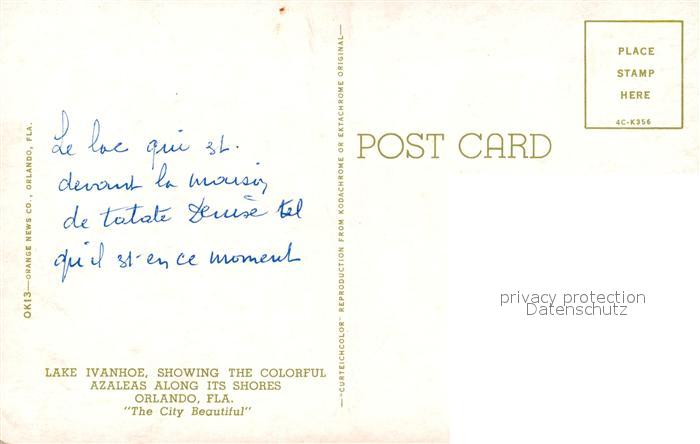 PLACE
STAMP
HERE
4C-K356
POST CARD
Le lac qui st.
devant la maison
de tatate Denise tel
qu'il st en ce moment
OK13—ORANGE NEWS CO., ORLANDO, FLA.
"CURTEICHCOLOR" REPRODUCTION FROM KODACHROME OR EKTACHROME ORIGINAL
privacy protection
Datenschutz
LAKE IVANHOE, SHOWING THE COLORFUL
AZALEAS ALONG ITS SHORES
ORLANDO, FLA.
"The City Beautiful"